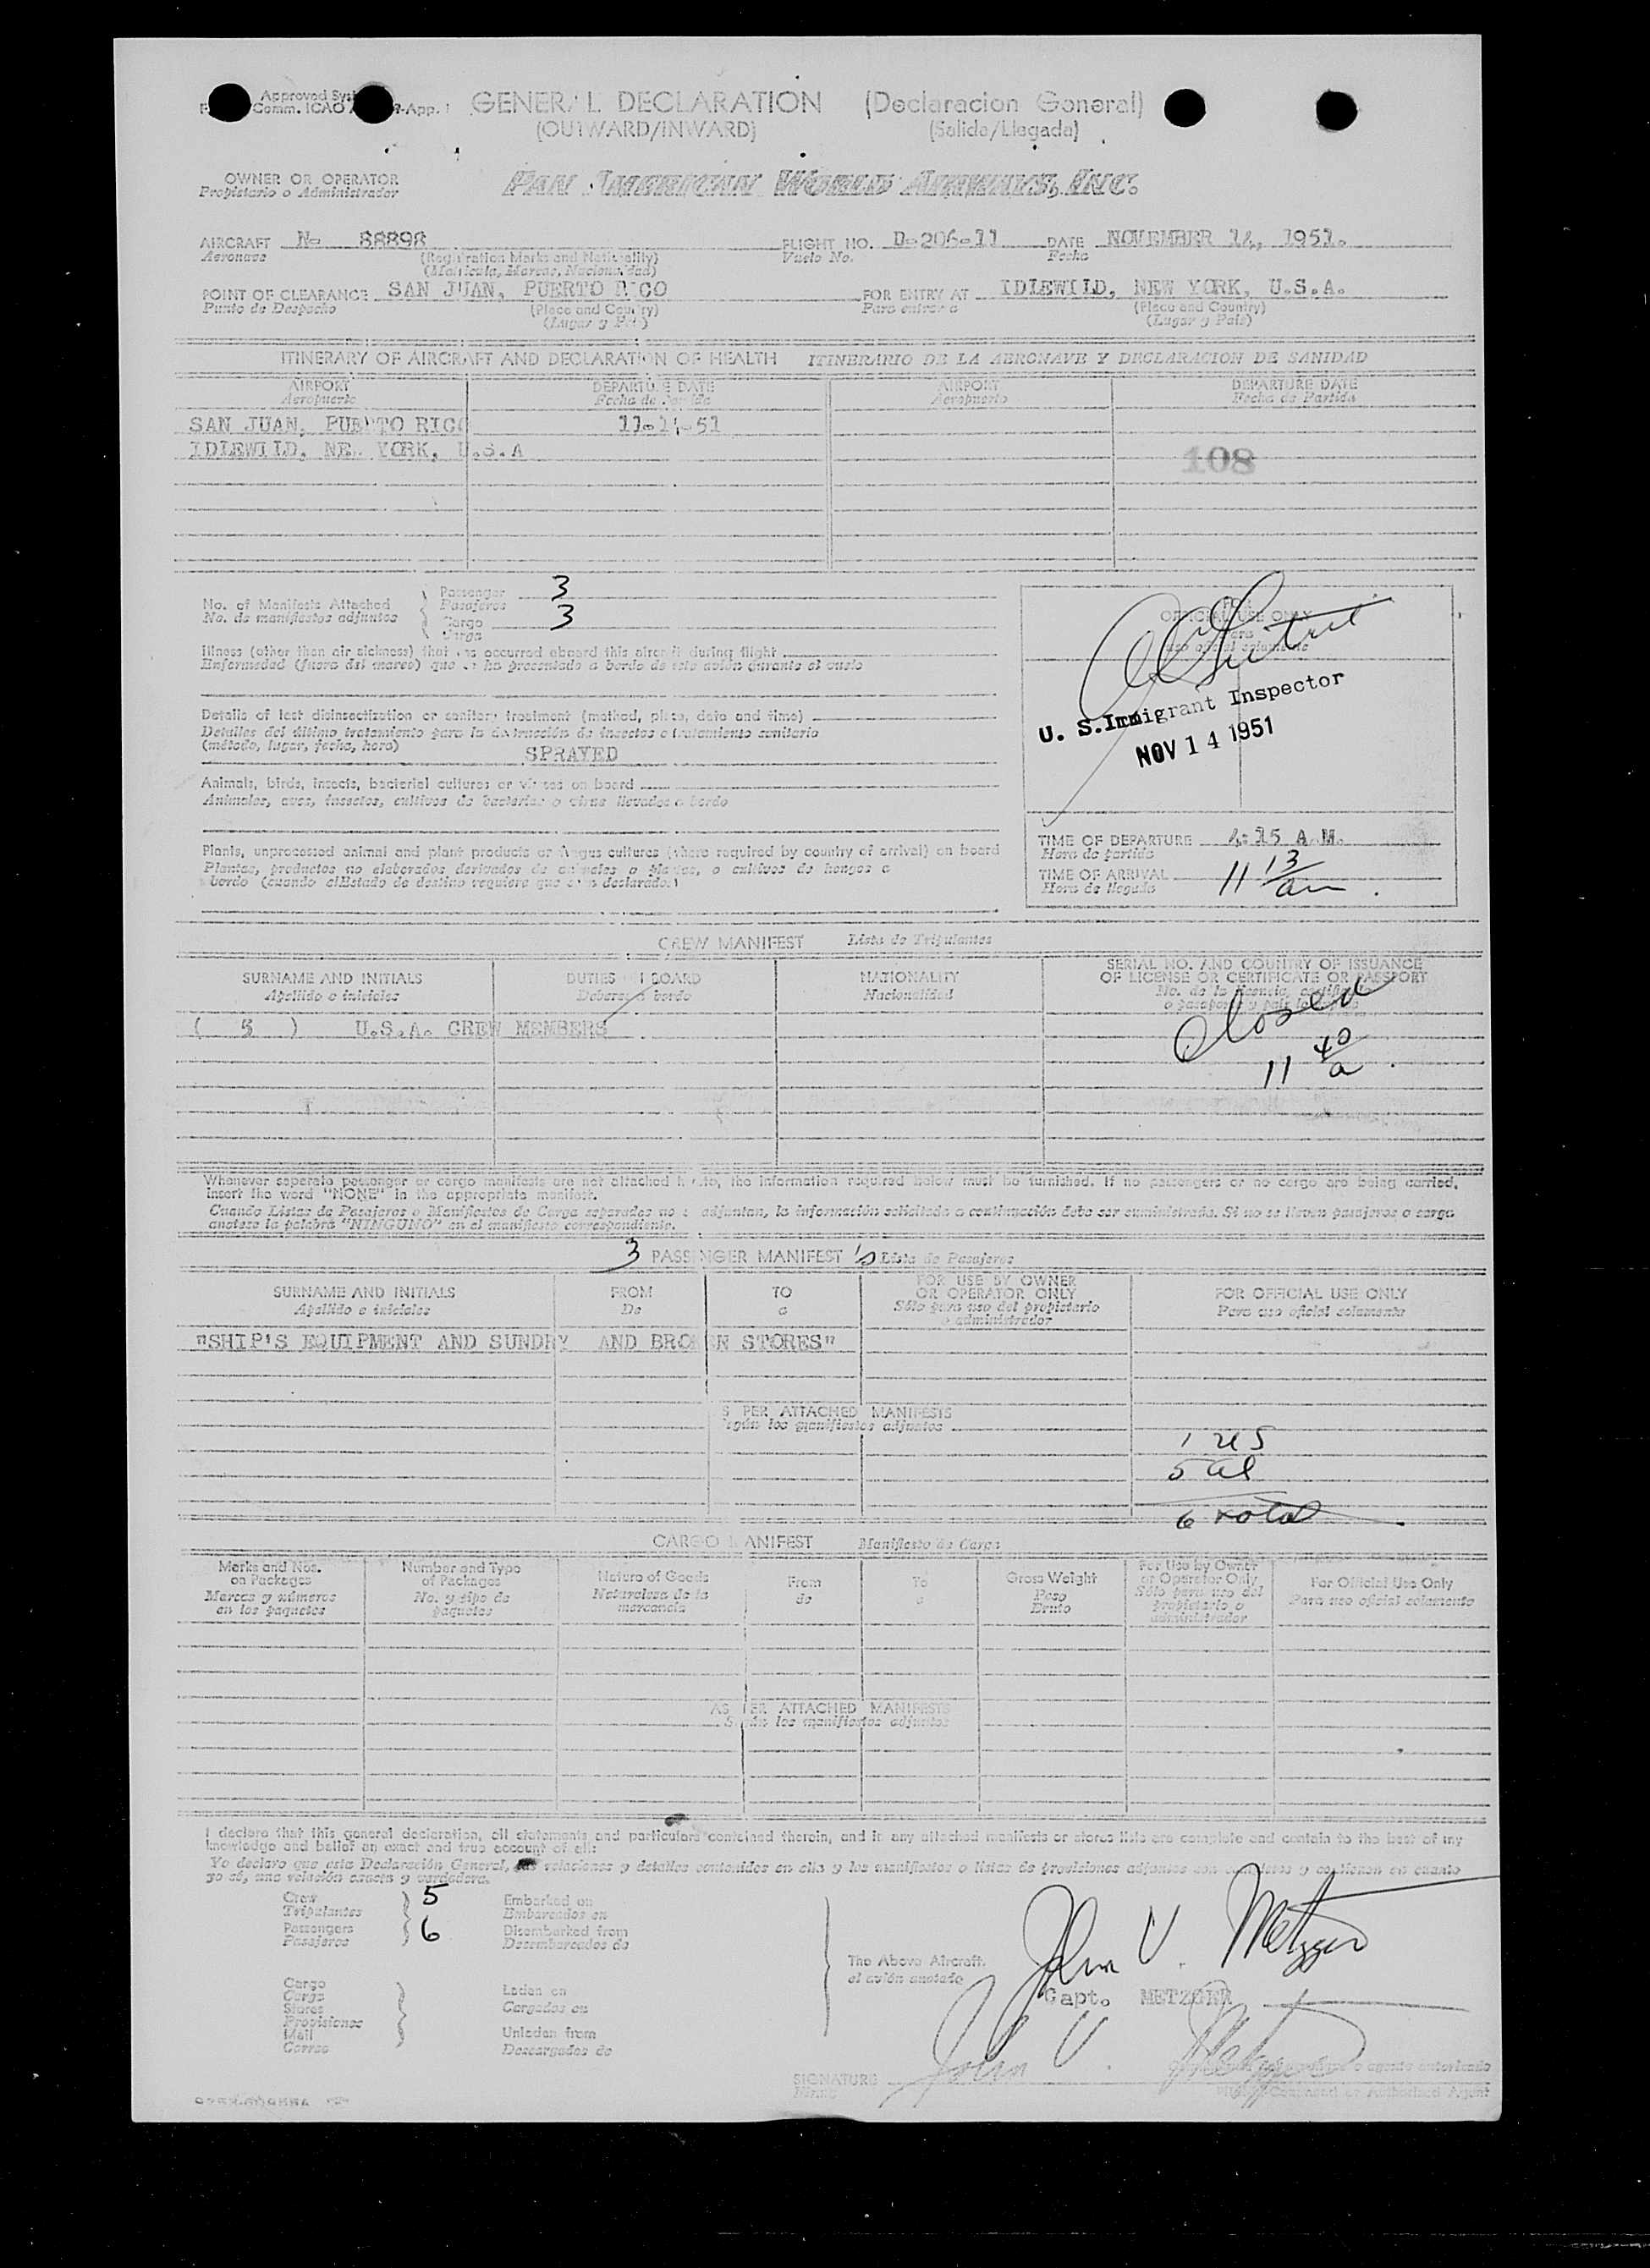 Approved
Comm. ICAO -App. 1
GENERAL DECLARATION (Declaracion General)
(OUTWARD/INWARD) (Salida/Llegada)
OWNER OR OPERATOR
Propietario o Administrador
PAN AMERICAN WORLD AIRWAYS, INC.
AIRCRAFT N- 88898 FLIGHT NO. D-206-11 DATE NOVEMBER 14, 1951.
Aeronave (Registration Marks and Nationality) Vuelo No. Fecha
(Matricula, Marcas, Nacionalidad)
POINT OF CLEARANCE SAN JUAN, PUERTO RICO FOR ENTRY AT IDLEWILD, NEW YORK, U.S.A.
Punto de Despacho (Place and Country) Para entrar a (Place and Country)
(Lugar y País) (Lugar y País)
ITINERARY OF AIRCRAFT AND DECLARATION OF HEALTH ITINERARIO DE LA AERONAVE Y DECLARACION DE SANIDAD
AIRPORT DEPARTURE DATE AIRPORT DEPARTURE DATE
Aeropuerto Fecha de Partida Aeropuerto Fecha de Partida
SAN JUAN, PUERTO RICO 11-14-51
IDLEWILD, NEW YORK, U.S.A
108
No. of Manifests Attached
No. de manifiestos adjuntos
Passenger 3
Pasajeros
Cargo 3
Carga
Illness (other than air sickness) that has occurred aboard this aircraft during flight
Enfermedad (fuera del mareo) que se ha presentado a bordo de este avión durante el vuelo
Details of last disinsectization or sanitary treatment (method, place, date and time)
Detalles del último tratamiento para la destrucción de insectos o tratamiento sanitario
(método, lugar, fecha, hora)
SPRAYED
Animals, birds, insects, bacterial cultures or viruses on board
Animales, aves, insectos, cultivos de bacterias o virus llevados a bordo
Plants, unprocessed animal and plant products or fungus cultures (where required by country of arrival) on board
Plantas, productos no elaborados derivados de animales o plantas, o cultivos de hongos a
bordo (cuando el Estado de destino requiera que sean declarados)
FOR
OFFICIAL USE ONLY
Para
uso oficial solamente
U. S. Immigrant Inspector
NOV 14 1951
TIME OF DEPARTURE 4:15 A.M.
Hora de partida
TIME OF ARRIVAL 11 13 am
Hora de llegada
CREW MANIFEST Lista de Tripulantes
SURNAME AND INITIALS DUTIES ON BOARD NATIONALITY SERIAL NO. AND COUNTRY OF ISSUANCE
OF LICENSE OR CERTIFICATE OR PASSPORT
Apellido e iniciales Deberes a bordo Nacionalidad
( 5 ) U.S.A. CREW MEMBERS
Closed
11 40 a
Whenever separate passenger or cargo manifests are not attached hereto, the information required below must be furnished. If no passengers or no cargo are being carried,
insert the word "NONE" in the appropriate manifest.
Cuando Listas de Pasajeros o Manifiestos de Carga separados no se adjuntan, la información solicitada a continuación debe ser suministrada. Si no se llevan pasajeros o carga
anótese la palabra "NINGUNO" en el manifiesto correspondiente.
3 PASSENGER MANIFEST 's Lista de Pasajeros
SURNAME AND INITIALS FROM TO FOR USE BY OWNER
OR OPERATOR ONLY FOR OFFICIAL USE ONLY
Apellido e iniciales De a Sólo para uso del propietario
o administrador Para uso oficial solamente
"SHIP'S EQUIPMENT AND SUNDRY AND BROKEN STORES"
AS PER ATTACHED MANIFESTS
Según los manifiestos adjuntos
1 US
5 al
6 total
CARGO MANIFEST Manifiesto de Carga
Marks and Nos.
on Packages
Marcas y números
en los paquetes
Number and Type
of Packages
No. y tipo de
paquetes
Nature of Goods
Naturaleza de la
mercancía
From
de
To
a
Gross Weight
Peso
Bruto
For Use by Owner
or Operator Only
Sólo para uso del
propietario o
administrador
For Official Use Only
Para uso oficial solamente
AS PER ATTACHED MANIFESTS
Según los manifiestos adjuntos
I declare that this general declaration, all statements and particulars contained therein, and in any attached manifests or stores lists are complete and contain to the best of my
knowledge and belief an exact and true account of all:
Yo declaro que esta Declaración General, las relaciones y detalles contenidos en ella y los manifiestos o listas de provisiones adjuntos son y contienen en cuanto
yo sé, una relación exacta y verdadera.
Crew 5 Embarked on
Tripulantes Embarcados en
Passengers 6 Disembarked from
Pasajeros Desembarcados de
Cargo
Carga Laden on
Stores Cargados en
Provisiones
Mail Unladen from
Correo Descargados de
The Above Aircraft.
el avión anotado
John V. Metzger
Capt. METZGER
John V. Metzger
SIGNATURE
Firma